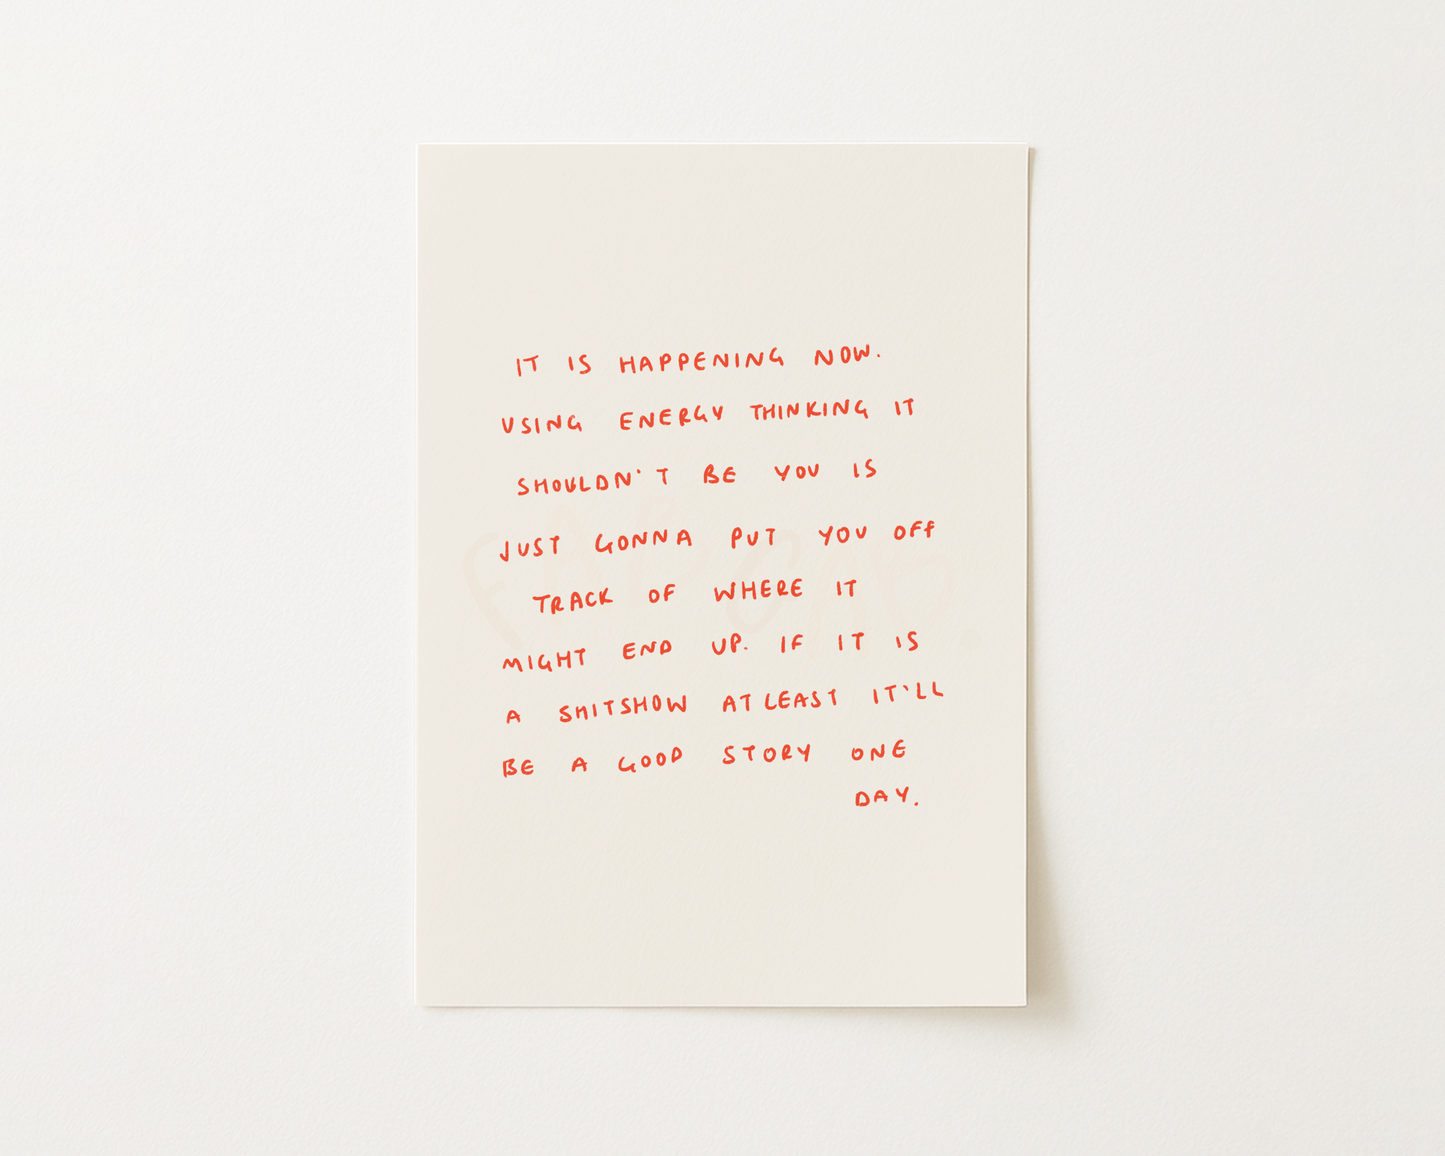 IT IS HAPPENING NOW.
USING ENERGY THINKING IT
SHOULDN'T BE YOU IS
JUST GONNA PUT YOU OFF
TRACK OF WHERE IT
MIGHT END UP. IF IT IS
A SHITSHOW AT LEAST IT'LL
BE A GOOD STORY ONE
DAY.